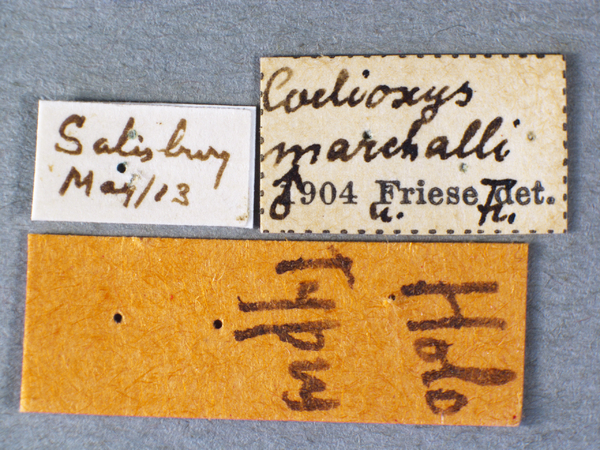 Salisbury
May/13
Coelioxys
marchalli
1904 Friese det.
n. Fr.
Holo
Typus